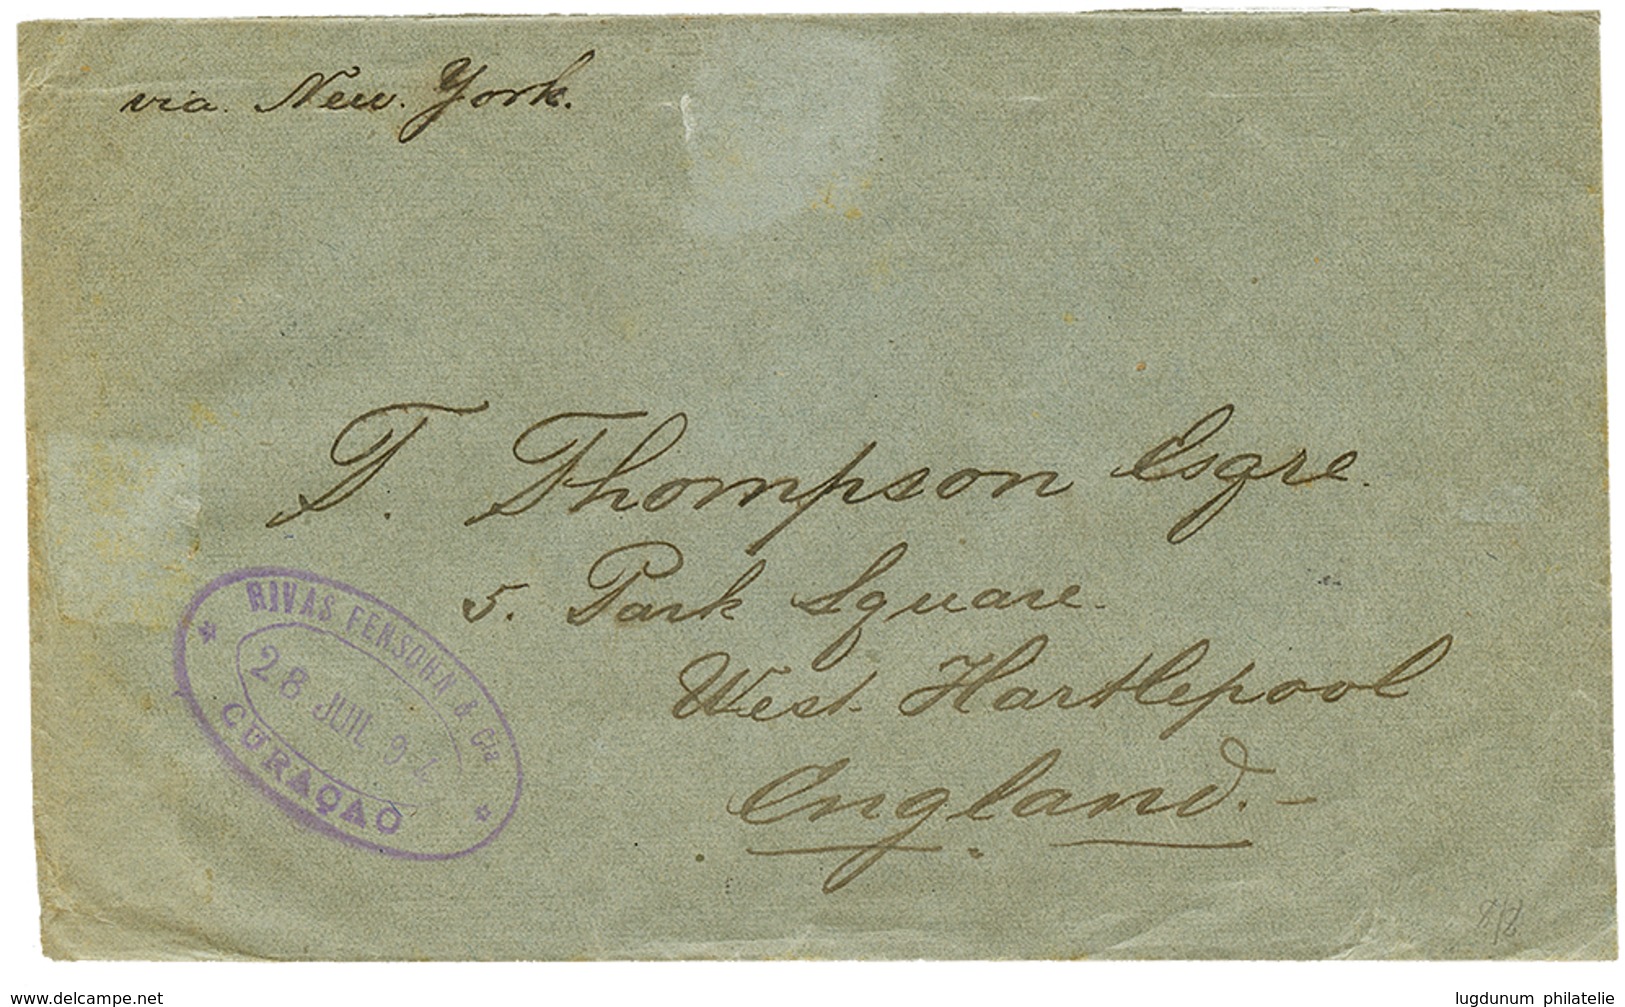 via. New. York.
T. Thompson Esqre.
5. Park Square.
West. Hartlepool
England.–
RIVAS FENSOHN & Cia
28 JUIL 94
CURAÇAO
delcampe.net
lugdunum philatelie